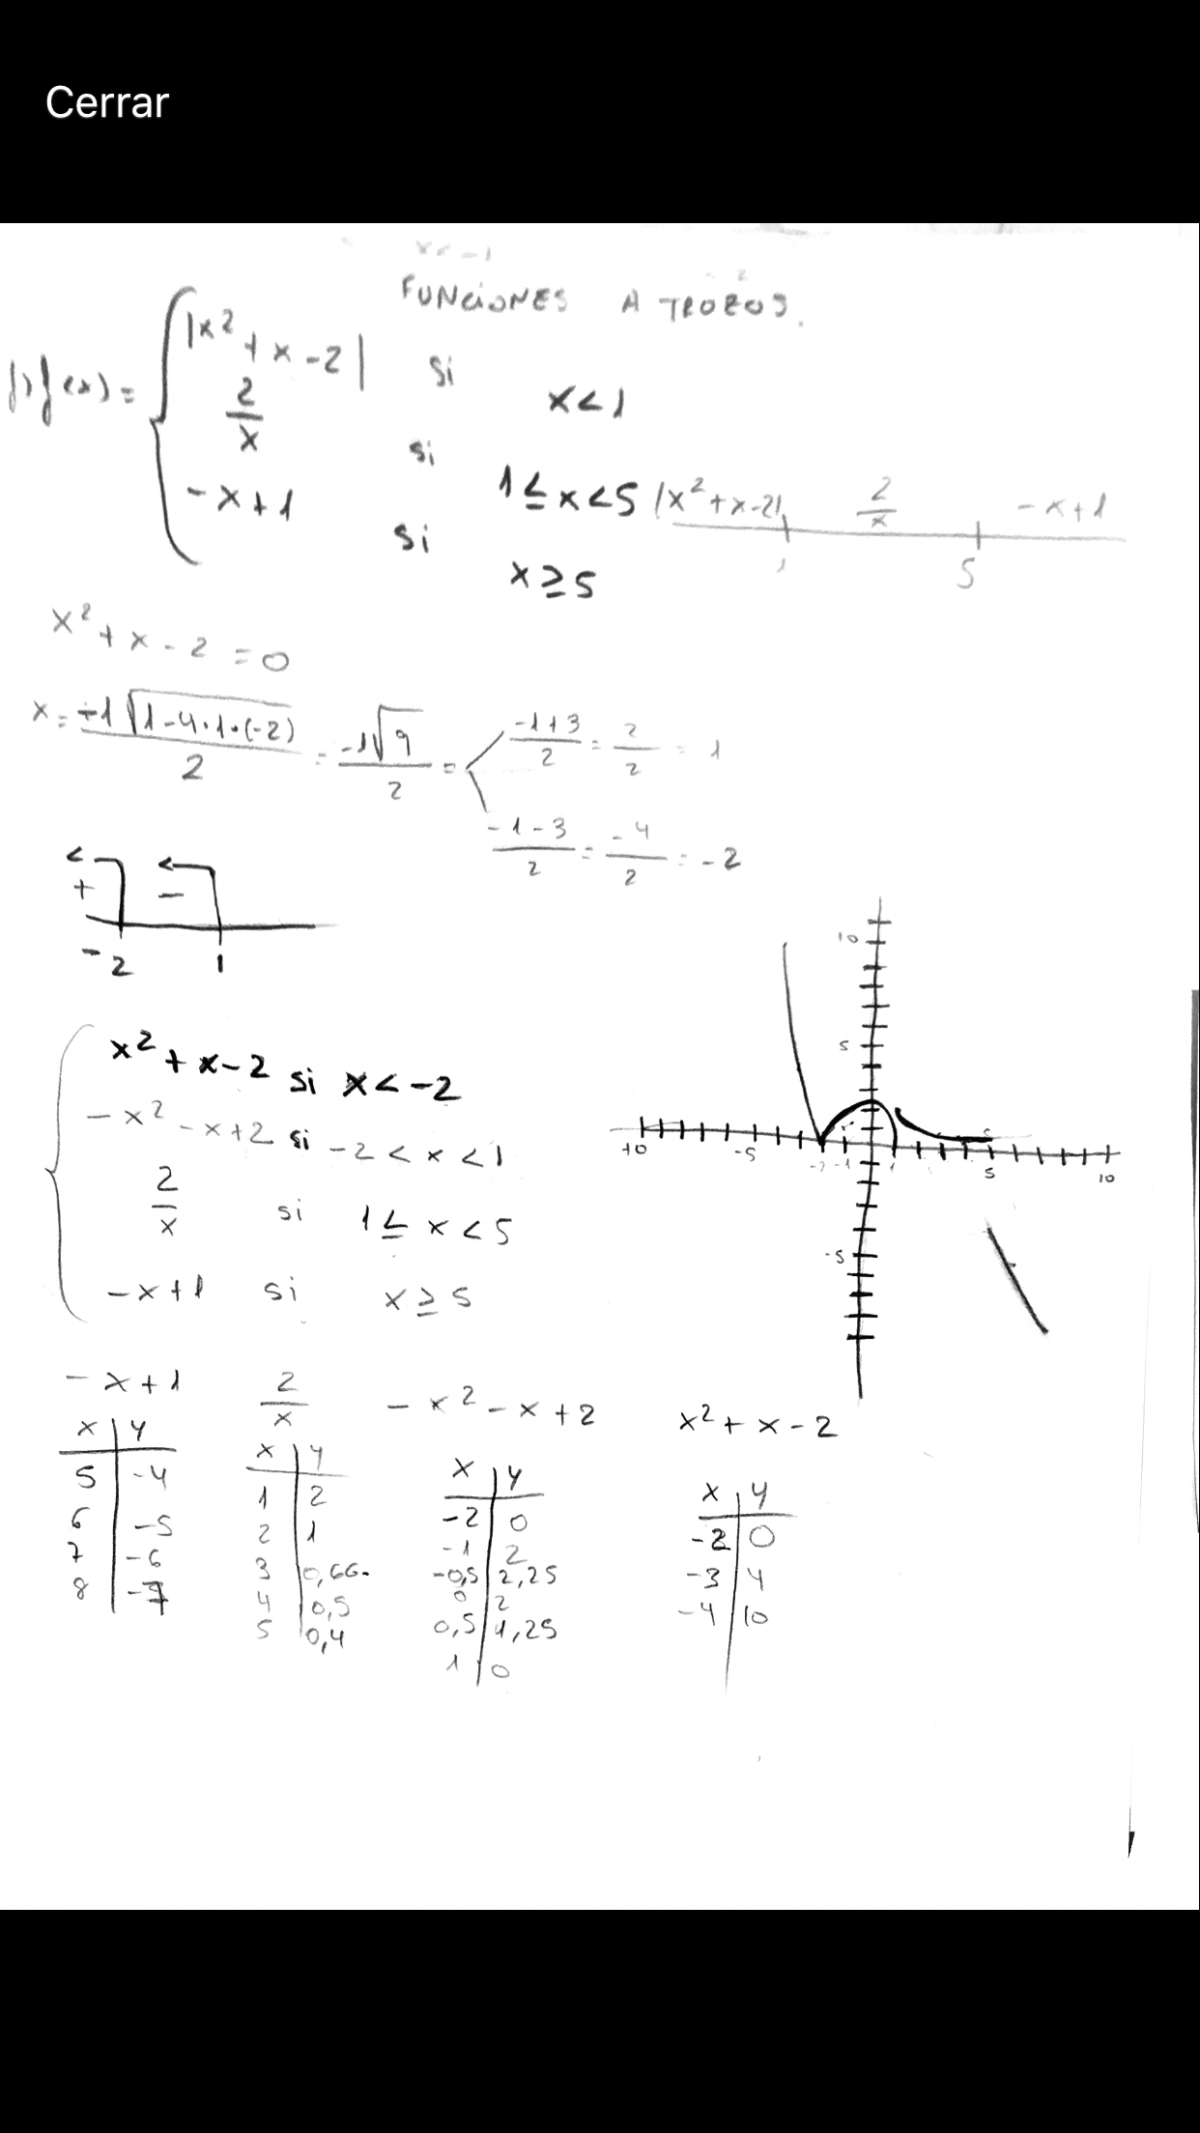 Cerrar
x < -1
FUNCIONES A TROZOS.
f(x) = { |x² + x - 2| si x < 1
2/x si 1 ≤ x < 5
-x + 1 si x ≥ 5
|x² + x - 2| 2/x -x + 1
1 5
x² + x - 2 = 0
x = +1 √(1 - 4·1·(-2)) / 2 = -1 √9 / 2 = < -1+3/2 = 2/2 = 1
-1-3/2 = -4/2 = -2
+ -
-2 1
x² + x - 2 si x < -2
-x² - x + 2 si -2 < x < 1
2/x si 1 ≤ x < 5
-x + 1 si x ≥ 5
10
5
10 -5 -2 -1 1 5 10
-5
-x + 1 2/x -x² - x + 2 x² + x - 2
x | y
5 | -4
6 | -5
7 | -6
8 | -7
x | y
1 | 2
2 | 1
3 | 0,66.
4 | 0,5
5 | 0,4
x | y
-2 | 0
-1 | 2
-0,5 | 2,25
0 | 2
0,5 | 1,25
1 | 0
x | y
-2 | 0
-3 | 4
-4 | 10